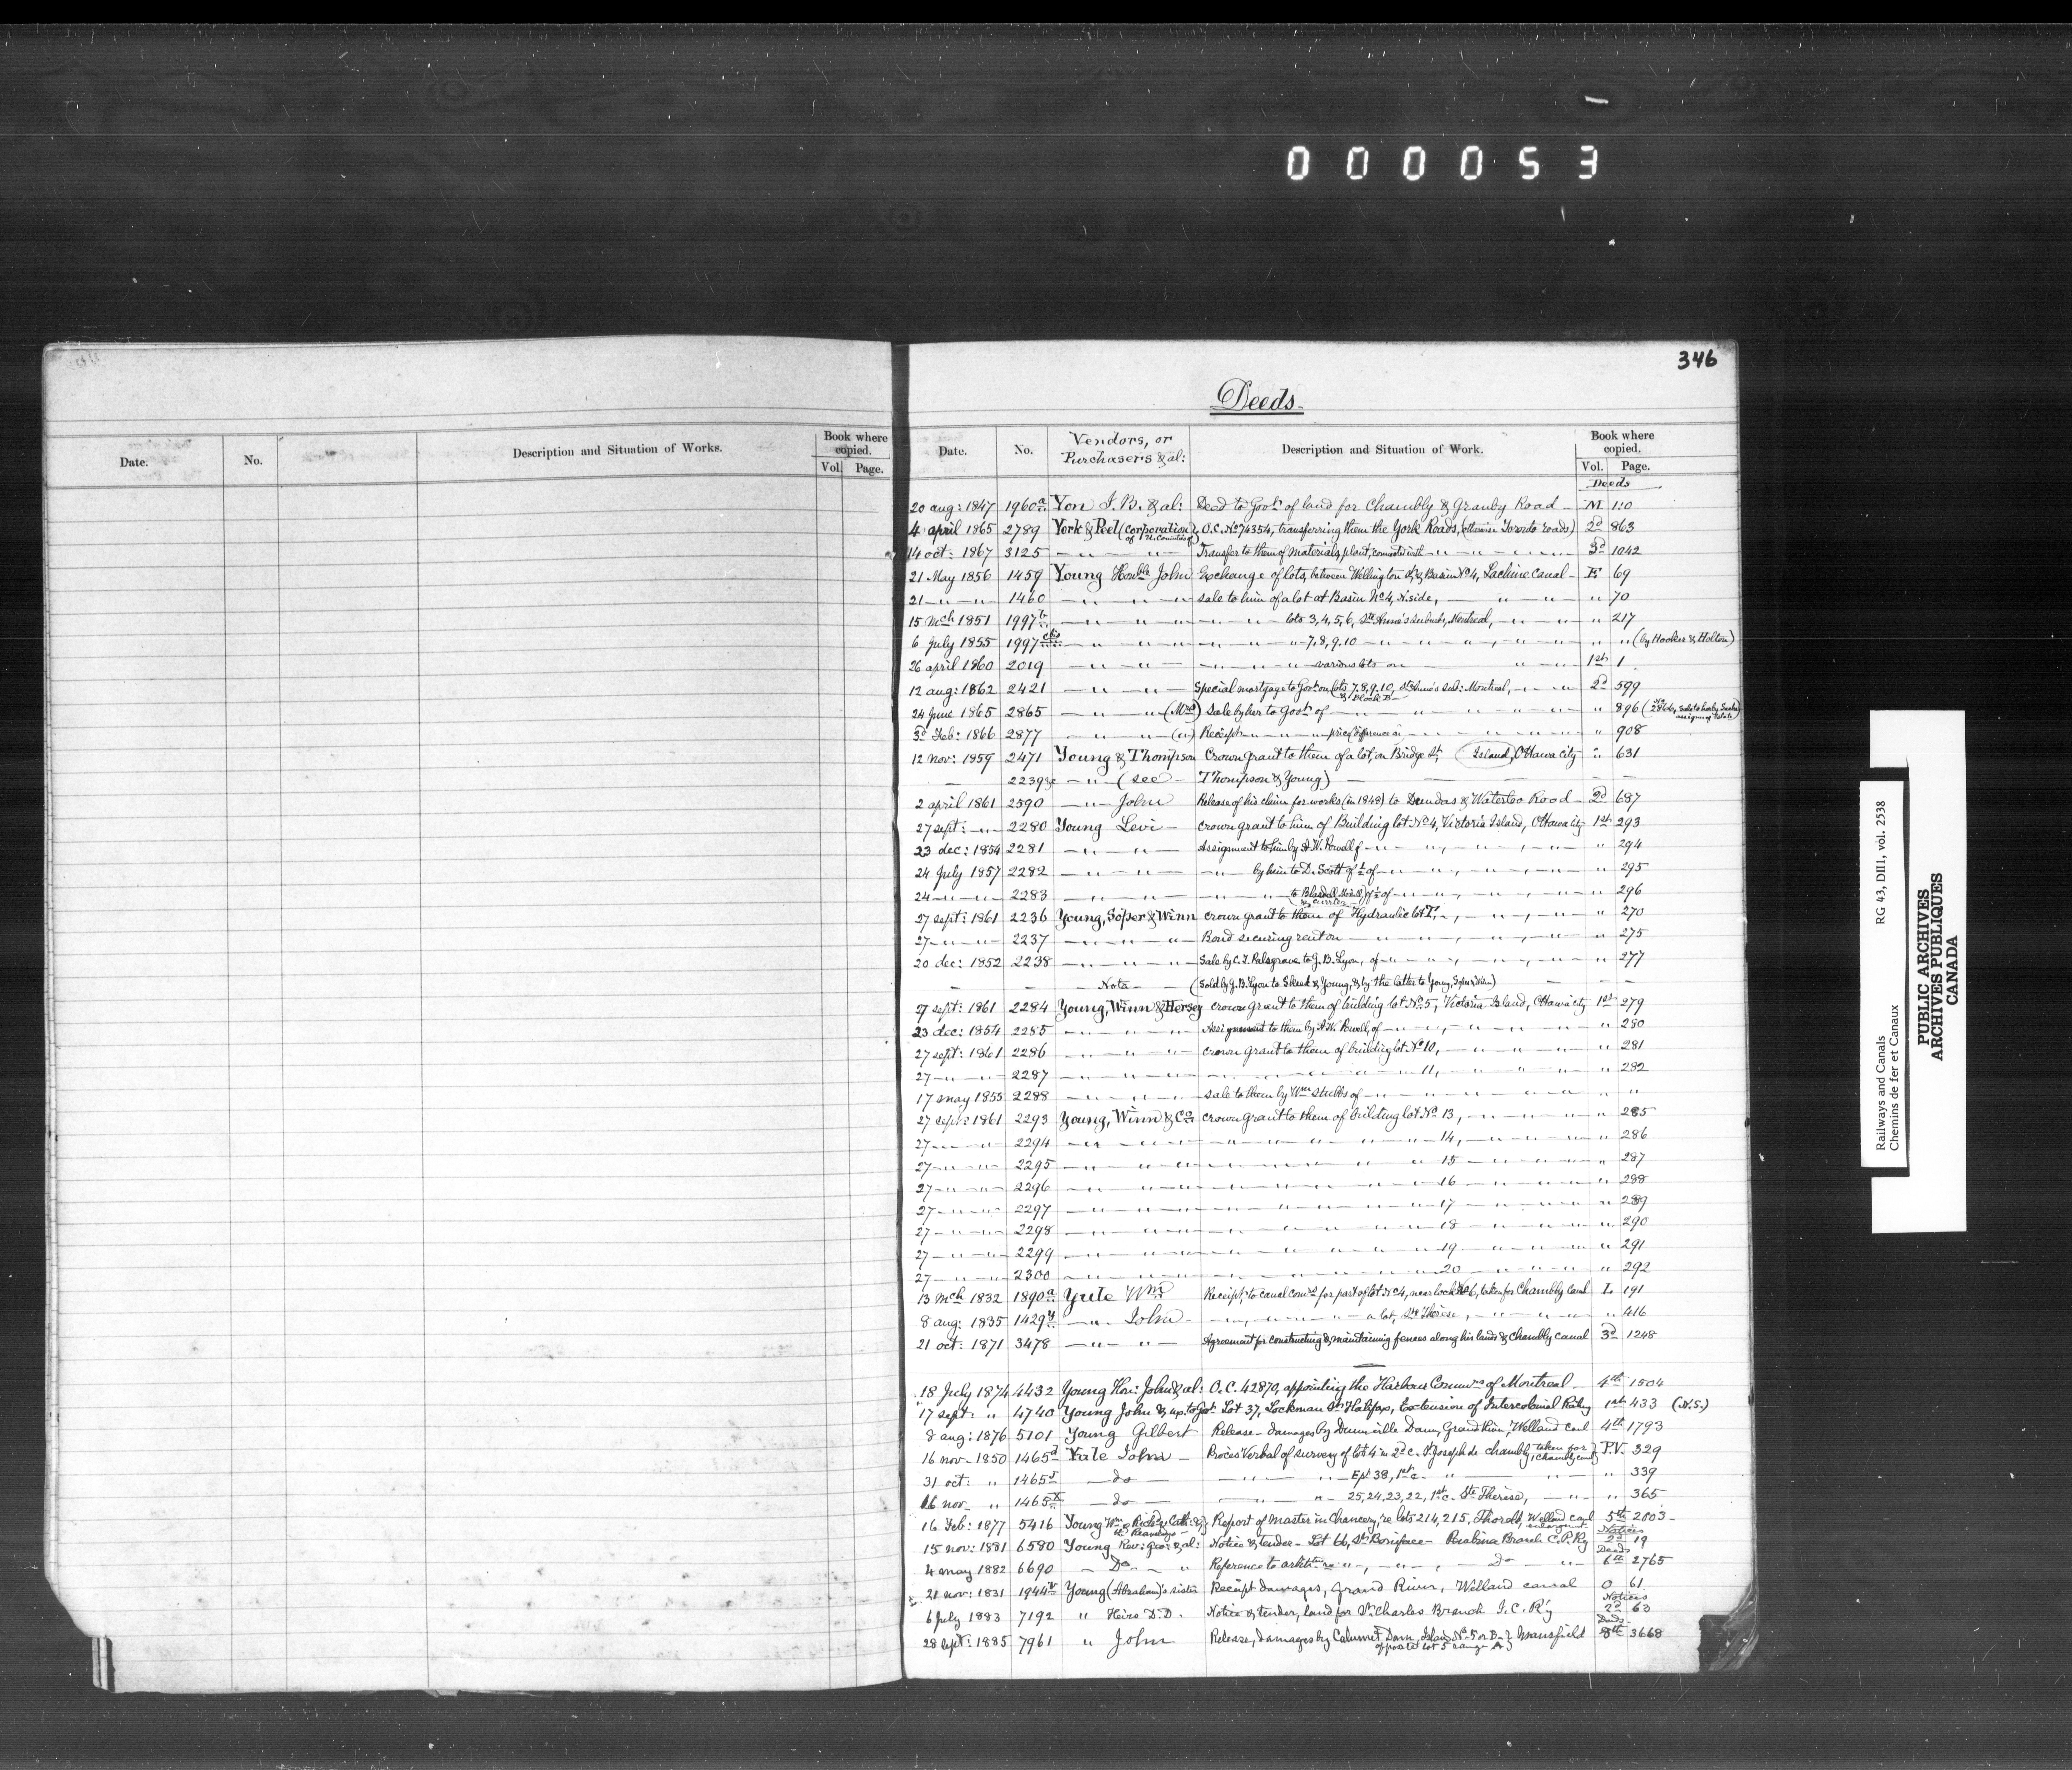 000053
346
Deeds.
Date. No. Description and Situation of Works. Book where copied. Vol. Page.
Date. No. Vendors, or Purchasers & al: Description and Situation of Work. Book where copied. Vol. Page.
Deeds
20 aug: 1847 1960a Yon J. B. & al: Deed to Govt of land for Chambly & Granby Road - M 110
4 april 1865 2789 York & Peel (corporation of Un. Counties of) O.C. No 74354, transferring them the York Roads, (otherwise Toronto roads) 2d 863
14 oct: 1867 3125 — " — " — Transfer to them of materials, plant, connected with — " — " — 3d 1042
21 May 1856 1459 Young Honble John Exchange of lots, between Wellington St, & Basin No 4, Lachine Canal - E 69
21 — " — " — 1460 — " — " — Sale to him of a lot at Basin No 4, N. side, — " — " — " 70
15 Mch 1851 1997b — " — " — " — lots 3, 4, 5, 6, Ste Anne's suburbs, Montreal, — " — " 217
6 July 1855 1997 — " — " — " — 7, 8, 9, 10 — " — " — " " (by Hooker & Holton)
26 april 1860 2019 — " — " — " — various lots on — " — " — 1st 1
12 aug: 1862 2421 — " — " — Special mortgage to Govt on lots 7, 8, 9, 10, & Block B Ste Anne's sub: Montreal, — " — 2d 599
24 June 1865 2865 — " — (Mrs) Sale by her to Govt of — " — " — " 896
3d Feb: 1866 2877 — " — (") Receipt — " — " — " 908
12 nov: 1859 2471 Young & Thompson Crown grant to them of a lot, on Bridge St, (Island,) Ottawa city " 631
2239 — " — (see Thompson & Young) —
2 april 1861 2590 — " — John Release of his claim for works (in 1848) to Dundas & Waterloo Road - 2d 687
27 sept: — " — 2280 Young Levi — crown grant to him of Building lot No 4, Victoria Island, Ottawa city 1st 293
23 dec: 1854 2281 — " — " — Assignment to him by A. W. Powell of — " — " — " 294
24 July 1857 2282 — " — " — " — by him to D. Scott of ½ of — " — " — " 295
24 — " — " — 2283 — " — " — — " — " 296
27 sept: 1861 2236 Young, Soper & Winn crown grant to them of Hydraulic lot T, — " — " 270
27 — " — " — 2237 — " — " — " — Bond securing rent on — " — " — " 275
20 dec: 1852 2238 — " — " — " — Sale by C. T. Palsgrave to J. B. Lyon, of — " — " — " 277
— Nota — (Sold by J. B. Lyon to Skead & Young, & by the latter to Young, Soper & Winn) —
27 sept: 1861 2284 Young, Winn & Hersey crown grant to them of building lot No 5, Victoria Island, Ottawa city 1st 279
23 dec: 1854 2285 — " — " — Assignment to them by A. W. Powell, of — " — " — " 280
27 sept: 1861 2286 — " — " — crown grant to them of building lot No 10, — " — " — " 281
27 — " — " — 2287 — " — " — " — 11, — " — " — " 282
17 may 1855 2288 — " — " — sale to them by Wm Stubbs of — " — " — " "
27 sept: 1861 2293 Young, Winn & Co crown grant to them of building lot No 13, — " — " — " 285
27 — " — " — 2294 — " — " — " — 14, — " — " — " 286
27 — " — " — 2295 — " — " — " — 15 — " — " — " 287
27 — " — " — 2296 — " — " — " — 16 — " — " — " 288
27 — " — " — 2297 — " — " — " — 17 — " — " — " 289
27 — " — " — 2298 — " — " — " — 18 — " — " — " 290
27 — " — " — 2299 — " — " — " — 19 — " — " — " 291
27 — " — " — 2300 — " — " — " — 20 — " — " — " 292
13 Mch 1832 1890a Yule Wm Receipt, to canal comrs for part of lot No 4, near lock No 6, taken for Chambly Canal L 191
8 aug: 1835 1429y — " — John — " — " — a lot, Ste Thérèse, — " — " — " 416
21 oct: 1871 3478 — " — " — Agreement for constructing & maintaining fences along his lands & Chambly canal 3d 1248
18 July 1874 4432 Young Hon: John & al: O.C. 42870, appointing the Harbour Commrs of Montreal - 4th 1504
17 sept: " 4740 Young John & ux. to Govt Lot 37, Lockman St Halifax, Extension of Intercolonial Railway 1st 433 (N.S.)
8 aug: 1876 5101 Young Gilbert Release - damages by Dunnville Dam, Grand River, Welland canl 4th 1793
16 nov- 1850 1465d Yule John - Procès Verbal of survey of lot 4 in 2d c. St Joseph de Chambly taken for Chambly canal P.V. 329
31 oct: " 1465 — do — — " — " — 38, 1st c. — " — " — " 339
16 nov " 1465x — do — — " — " — 25, 24, 23, 22, 1st c. Ste Thérèse, — " — " 365
16 Feb: 1877 5416 Young Report of Master in Chancery, re lots 214, 215, Thorold, Welland canl enlargement 5th 2003 -
Notices
15 nov: 1881 6580 Young Rev: Geo: & al: Notice & tender - Lot 66, St Boniface - Pembina Branch C.P. Ry 2d 19
Deeds
4 may 1882 6690 — Do — " Reference to arbitron re " —, — " —, — do — " — 6th 2765
21 nov: 1831 1944 Young (Abraham)'s sister Receipt damages, Grand River, Welland canal O 61
Notices
6 July 1883 7192 " Heirs D. D. Notice & tender, land for St Charles Branch I. C. R'y 2d 63
Deeds
28 sept: 1885 7961 " John Release, damages by Calumet Dam, Island No 5 or B- opposite lot 5 range A } Mansfield 8th 3668
Railways and Canals RG 43, DIII 1, vol. 2538
Chemins de fer et Canaux
PUBLIC ARCHIVES
ARCHIVES PUBLIQUES
CANADA